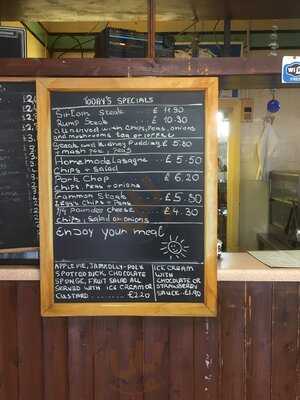 TODAY'S SPECIALS
Sirloin Steak £ 11.30
Rump Steak £ 10.30
all served with chips, Peas, onions
and mushrooms tea or coffee
Steak and Kidney Pudding £5.80
+ mash Pot, Peas
Homemade Lasagne £5.50
Chips + Salad
Pork Chop £6.20
Chips, Peas + onions
Gammon Steak £5.80
2 Eggs Chips + Peas
1/4 Pounder Cheese £4.30
Chips, Salad or onions
Enjoy your meal
APPLE PIE, JAM ROLLY-POLY
SPOTTED DICK, CHOCOLATE
SPONGE, FRUIT SALAD ALL
SERVED WITH ICE CREAM OR
CUSTARD £2.20
ICE CREAM
WITH
CHOCOLATE OR
STRAWBERRY
SAUCE £1.90